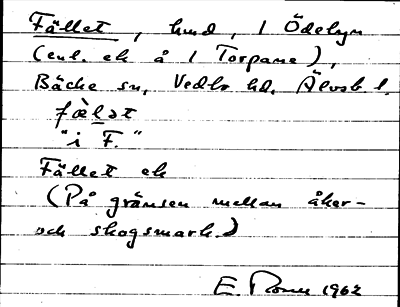 Fället, hmd, 1 Ödebyn
(enl. ek å 1 Torpane),
Bäcke sn, Vedbo hd, Älvsb l.
fæ̀lət
"i F."
Fället ek
(På gränsen mellan åker-
och skogsmark.)
E. 1962